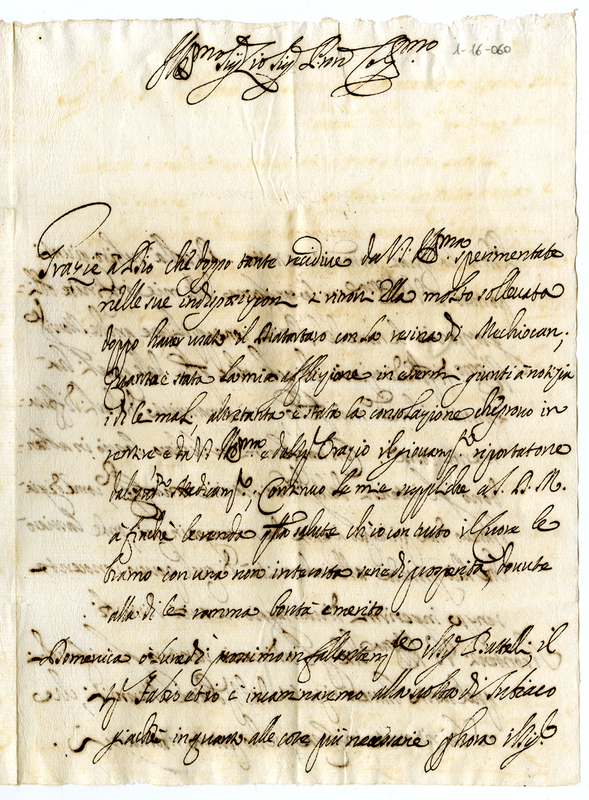 Ill.mo Sig. Zio Sig. Pron Col.mo
1-16-060
Grazie à Dio che doppo tante recidive da V.S. Ill.ma sperimentate
nelle sue indisposizioni si ritrovi Ella molto sollevata
doppo haver usato il Diatartaro con la resina di Mechiocan;
Quanta è stata la mia afflizione in essermi giunti à notizia
i di lei mali, altretanta è stata la consolazione che provo in
sentire e da V.S. Ill.ma e dal Sig. Orazio il giovam.to riportatone
dal Medicam.to, Continuo le mie suppliche a S. D. M.
à finchè le renda salute ch'io con tutto il cuore le
bramo con una non interrotta serie di prosperità, dovute
alla di lei somma bontà e merito.
Domenica ò lunedì prossimo infallantem.te il Sig. Battelli, il
Sig. Fabio et io c'incamineremo alla volta di Subiaco
giachè in quanto alle cose più necessarie p hora il Sig.